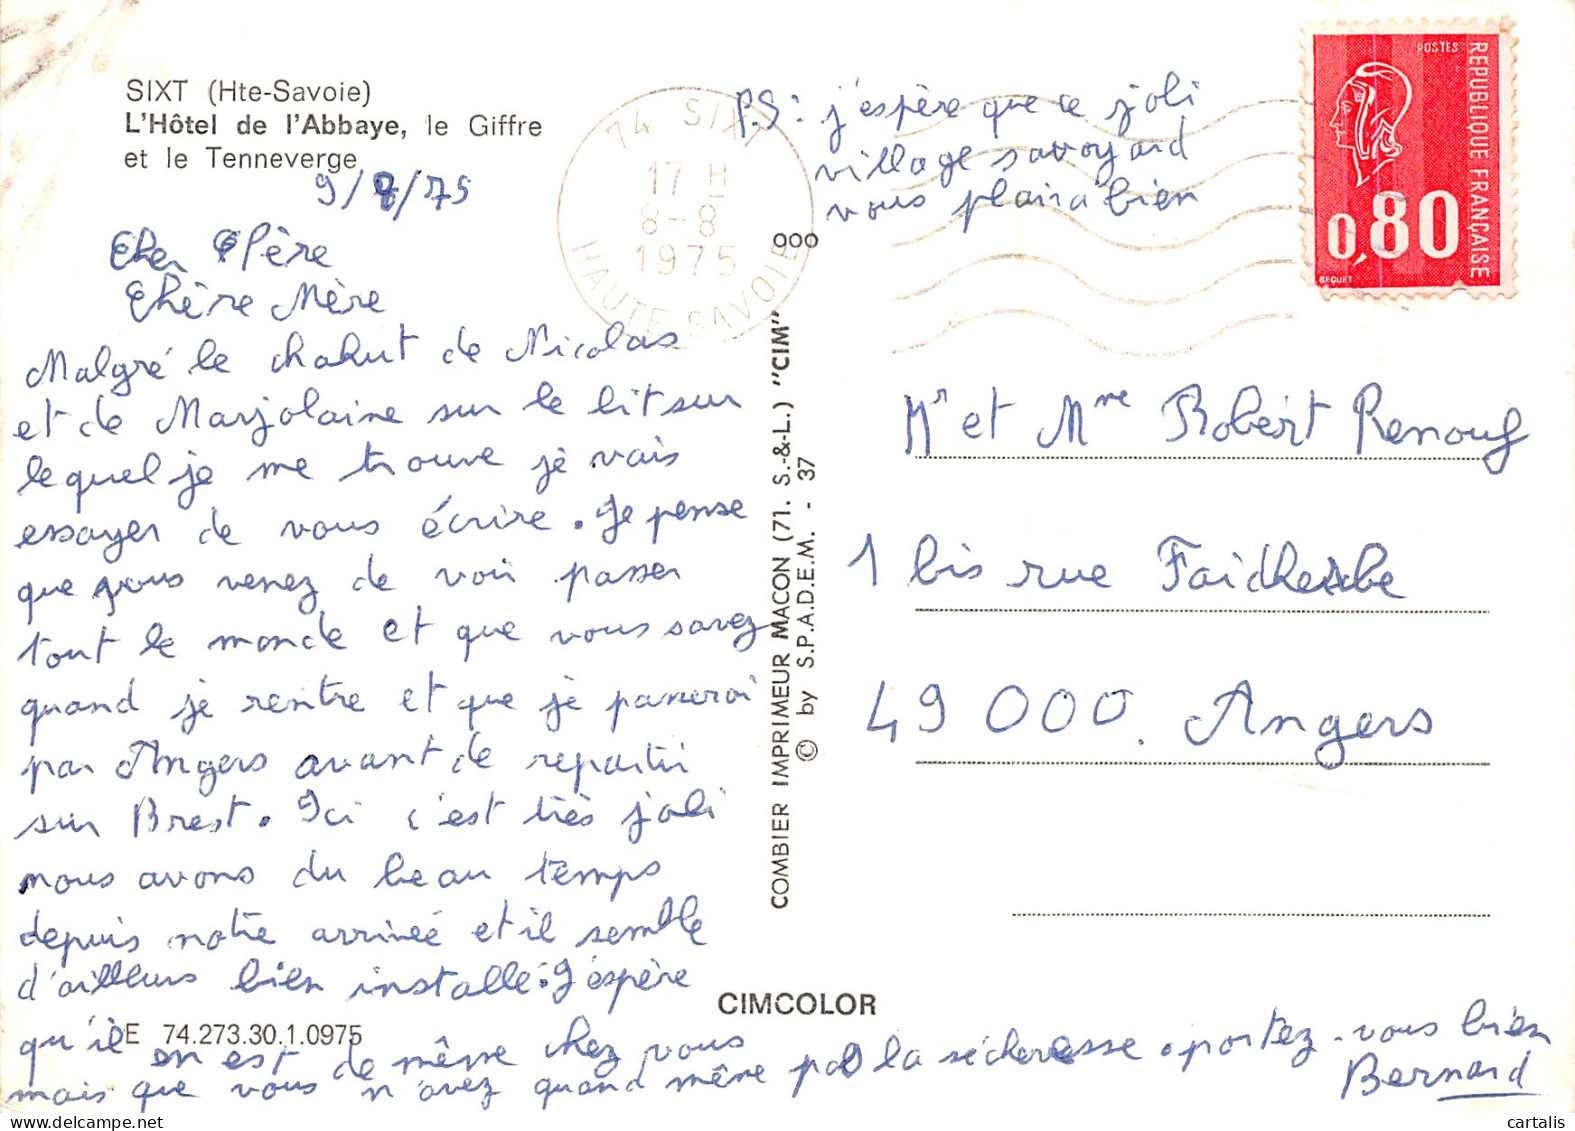 SIXT (Hte-Savoie)
L'Hôtel de l'Abbaye, le Giffre
et le Tenneverge
9/8/75
Cher Père
Chère Mère
Malgré le chahut de Nicolas
et de Marjolaine sur le lit sur
lequel je me trouve je vais
essayer de vous écrire. Je pense
que vous venez de voir passer
tout le monde et que vous savez
quand je rentre et que je passerai
par Angers avant de repartir
sur Brest. Ici c'est très joli
nous avons du beau temps
depuis notre arrivée et il semble
d'ailleurs bien installé. J'espère
qu'il en est de même chez vous
mais que vous n'avez quand même pas la sécheresse. portez-vous bien
Bernard
E 74.273.30.1.0975
74 SIXT
17 H
8-8
1975
HAUTE SAVOIE
P.S: j'espère que ce joli
village savoyard
vous plaira bien
000
COMBIER IMPRIMEUR MACON (71. S.-&-L.) "CIM"
© by S.P.A.D.E.M. - 37
CIMCOLOR
POSTES
REPUBLIQUE FRANÇAISE
0,80
BEQUET
Mr et Mme Robert Renouf
1 bis rue Faidherbe
49 000. Angers
cartalis
www.delcampe.net